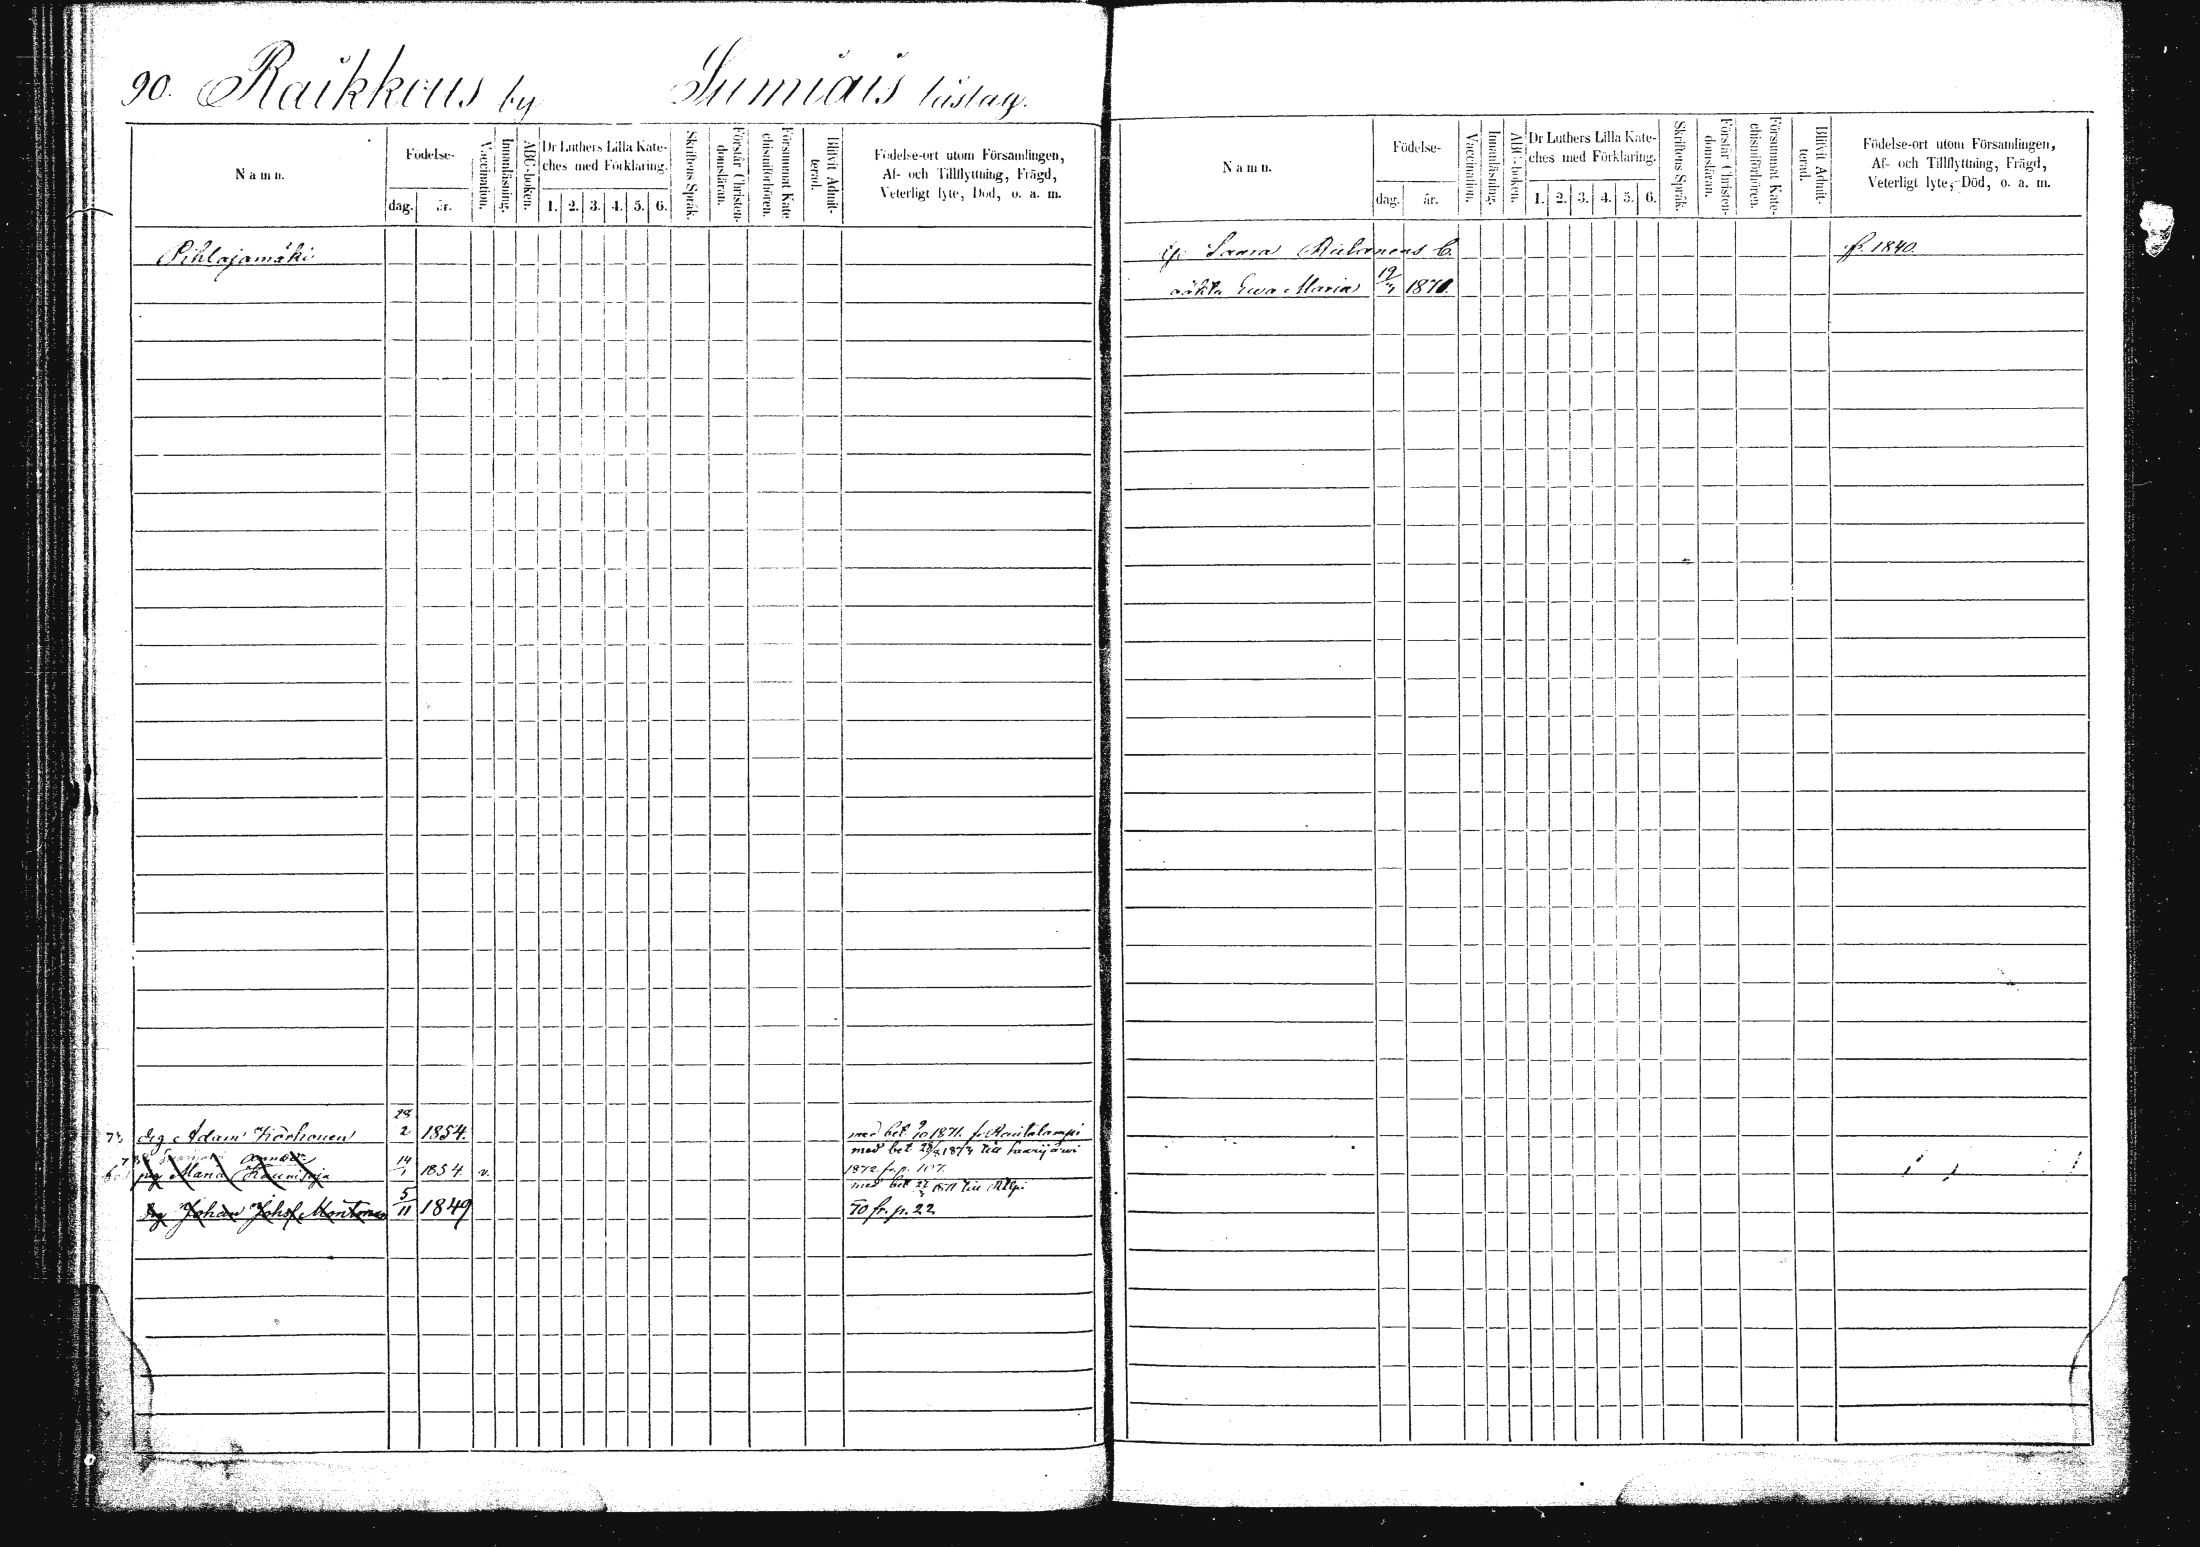 90. Raikkous by Sumiais läslag.
Namn.
Födelse-
dag. år.
Vaccination.
Innanläsning.
ABC-boken.
Dr Luthers Lilla Kate-
ches med Förklaring.
1. 2. 3. 4. 5. 6.
Skriftens Språk.
Förstår Christen-
domsläran.
Försummat Kate-
chismiförhören.
Blifvit Admit-
terad.
Födelse-ort utom Församlingen,
Af- och Tillflyttning, Frägd,
Veterligt lyte, Död, o. a. m.
Pihlajamäki
28/2 1854. med bet 9/10 1871. fr Rautalampi
drg Adam Korhonen
med bet 1874 till Saarijärvi
pig Maria 14/1 1854 v. 1872 fr. p. 107.
med bet 1871 till
drg Johan Johsf Montonen 5/11 1849 70 fr. p. 22
Namn.
Födelse-
dag. år.
Vaccination.
Innanläsning.
ABC-boken.
Dr Luthers Lilla Kate-
ches med Förklaring.
1. 2. 3. 4. 5. 6.
Skriftens Språk.
Förstår Christen-
domsläran.
Försummat Kate-
chismiförhören.
Blifvit Admit-
terad.
Födelse-ort utom Församlingen,
Af- och Tillflyttning, Frägd,
Veterligt lyte, Död, o. a. m.
Saara f. 1840.
oäkta Ewa Maria 1871.